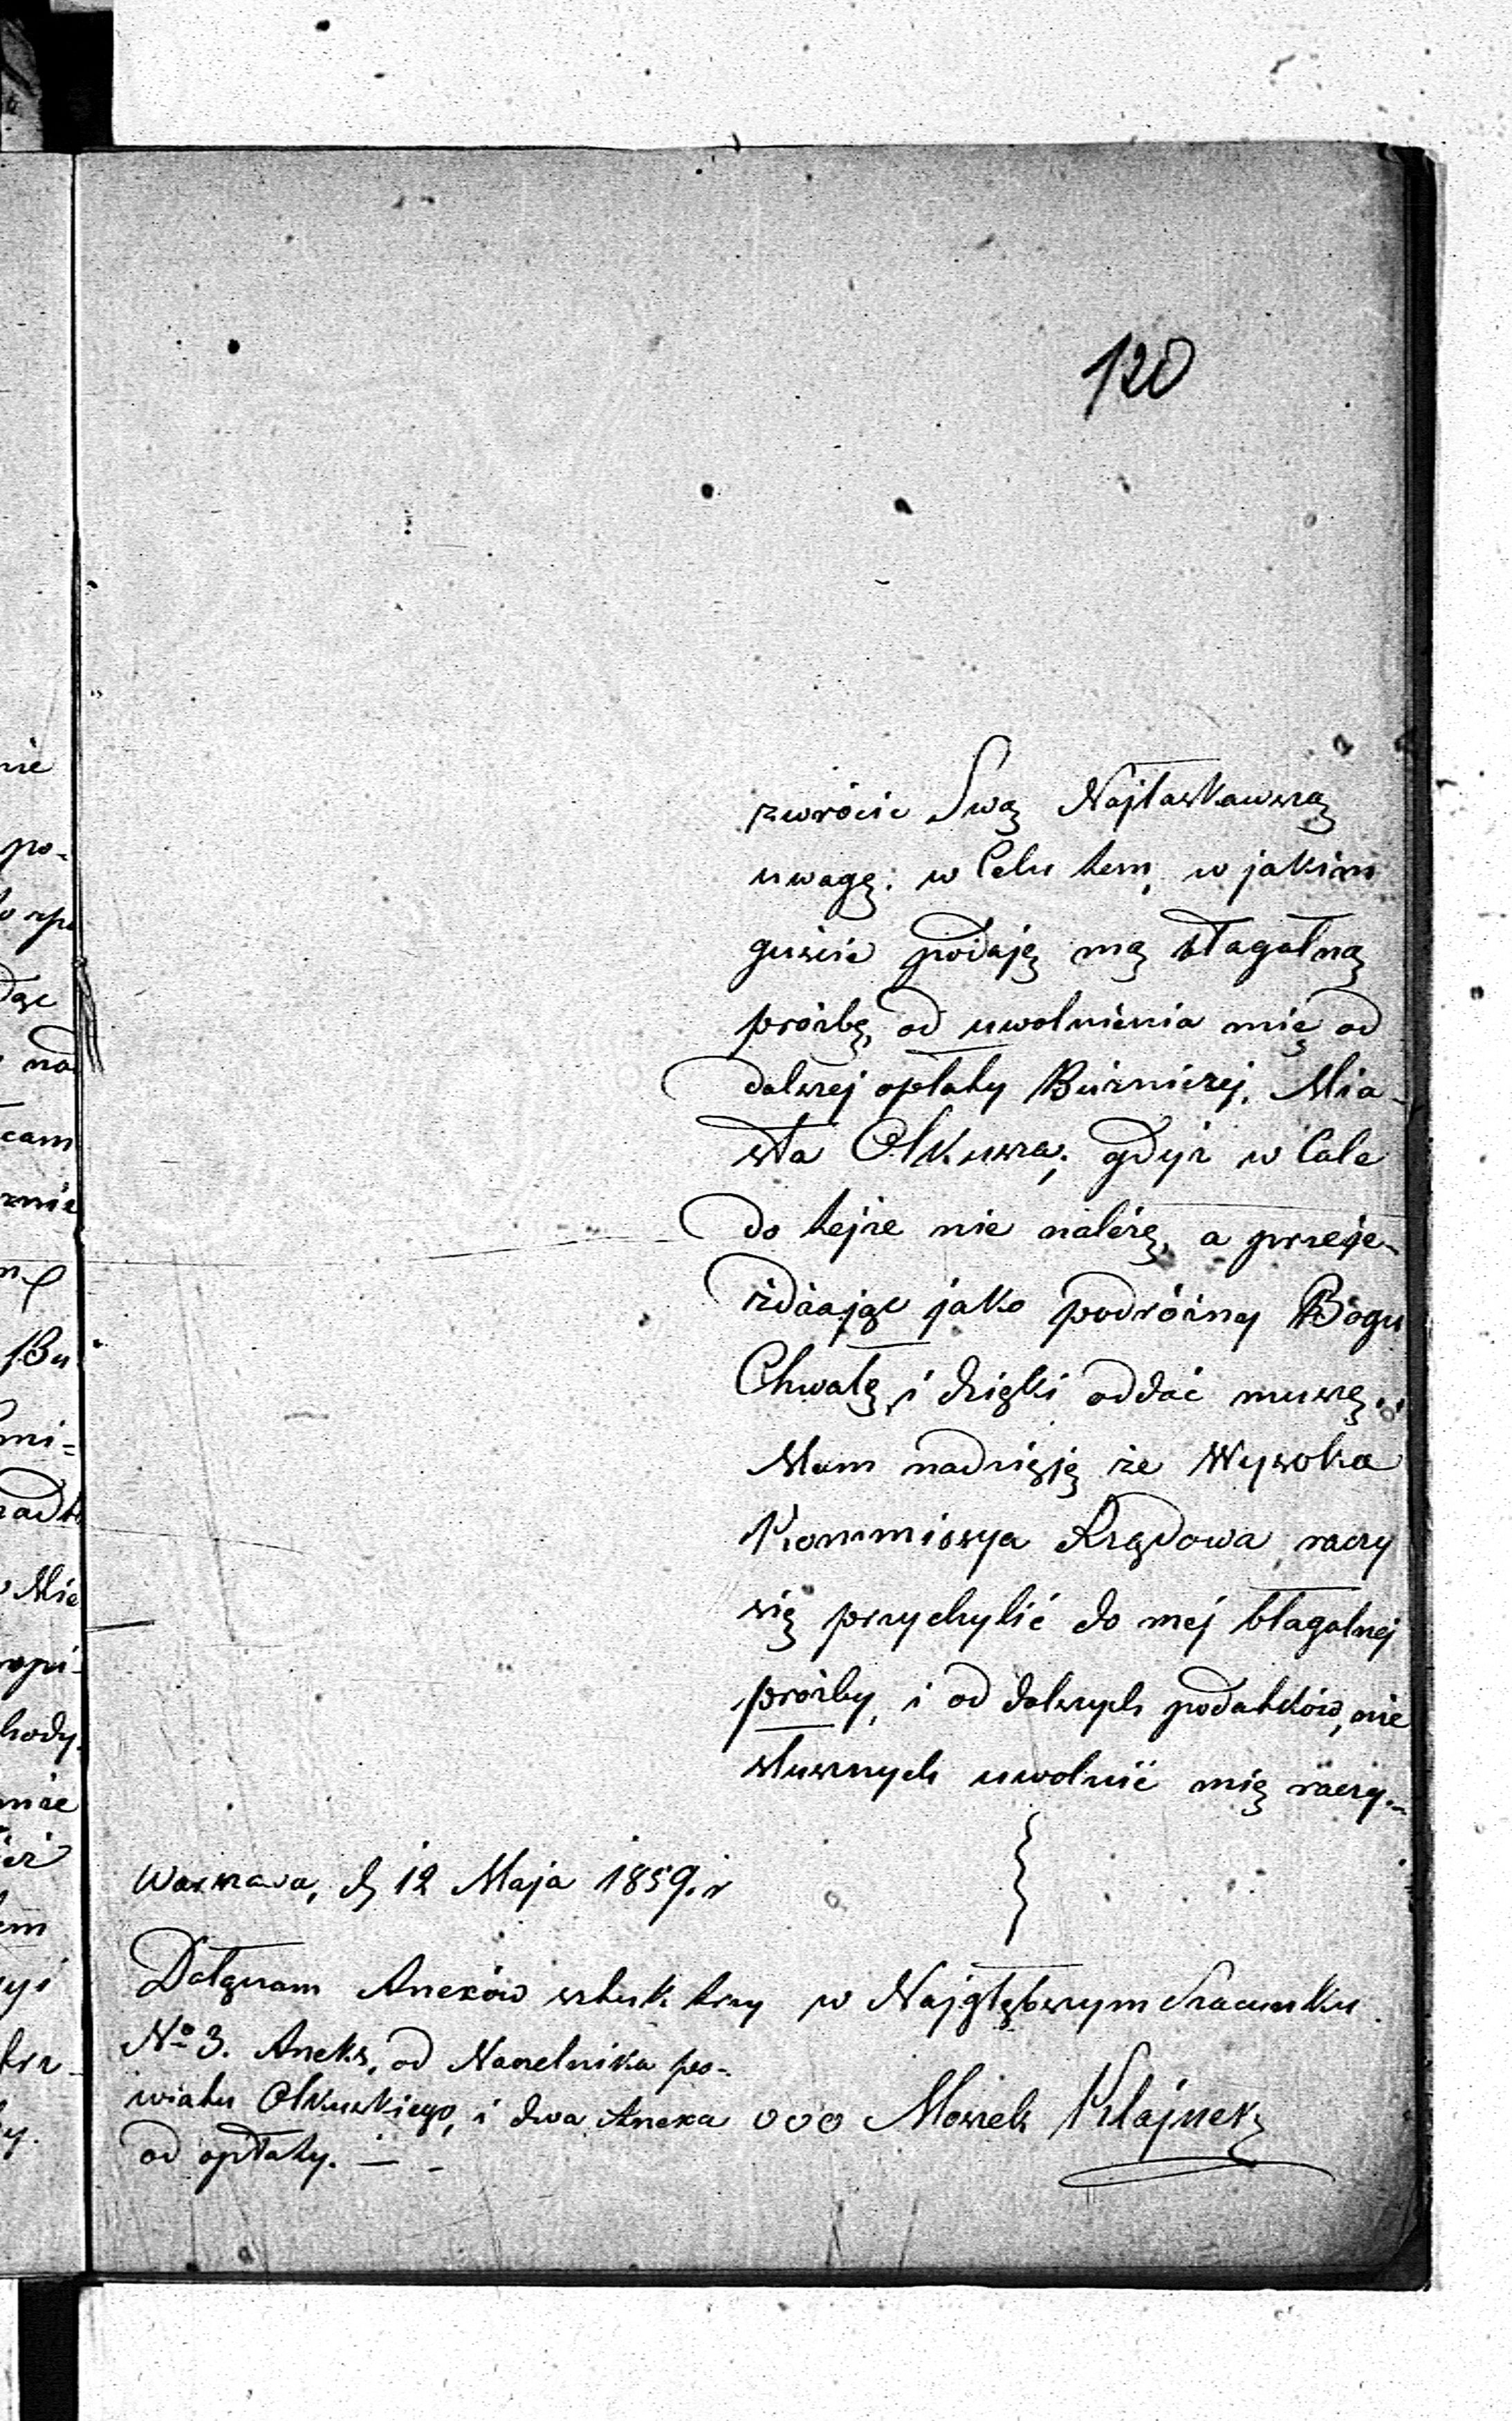 120
zwrócic Swą Najłaskawszą
uwagę: w Celu tem, w jakim
guście podaję mą błagalną
prożbę, od uwolnienia mię od
dalszej opłaty Bużniczej, Mia-
sta Olkusza; gdyż w Cale
do tejże nie należę, a przeje-
żdżając jako podróżny Bogu
Chwałę i dzięki oddać muszę.
Mam nadzieję że Wysoka
Kommissya Rządowa raczy
się przychylić do mej błagalnej
prożby, i od dalszych podatków, nie
słusznych uwolnić mię raczy.
Warszawa, d 12 Maja 1859. r
Dołączam Anexów sztuk trzy
w Najgłębszym Szacunku
No 3. Aneks, od Naczelnika po-
wiatu Olkuskiego, i dwa Anexa
od opłaty. —
000 Moszek Klajnek